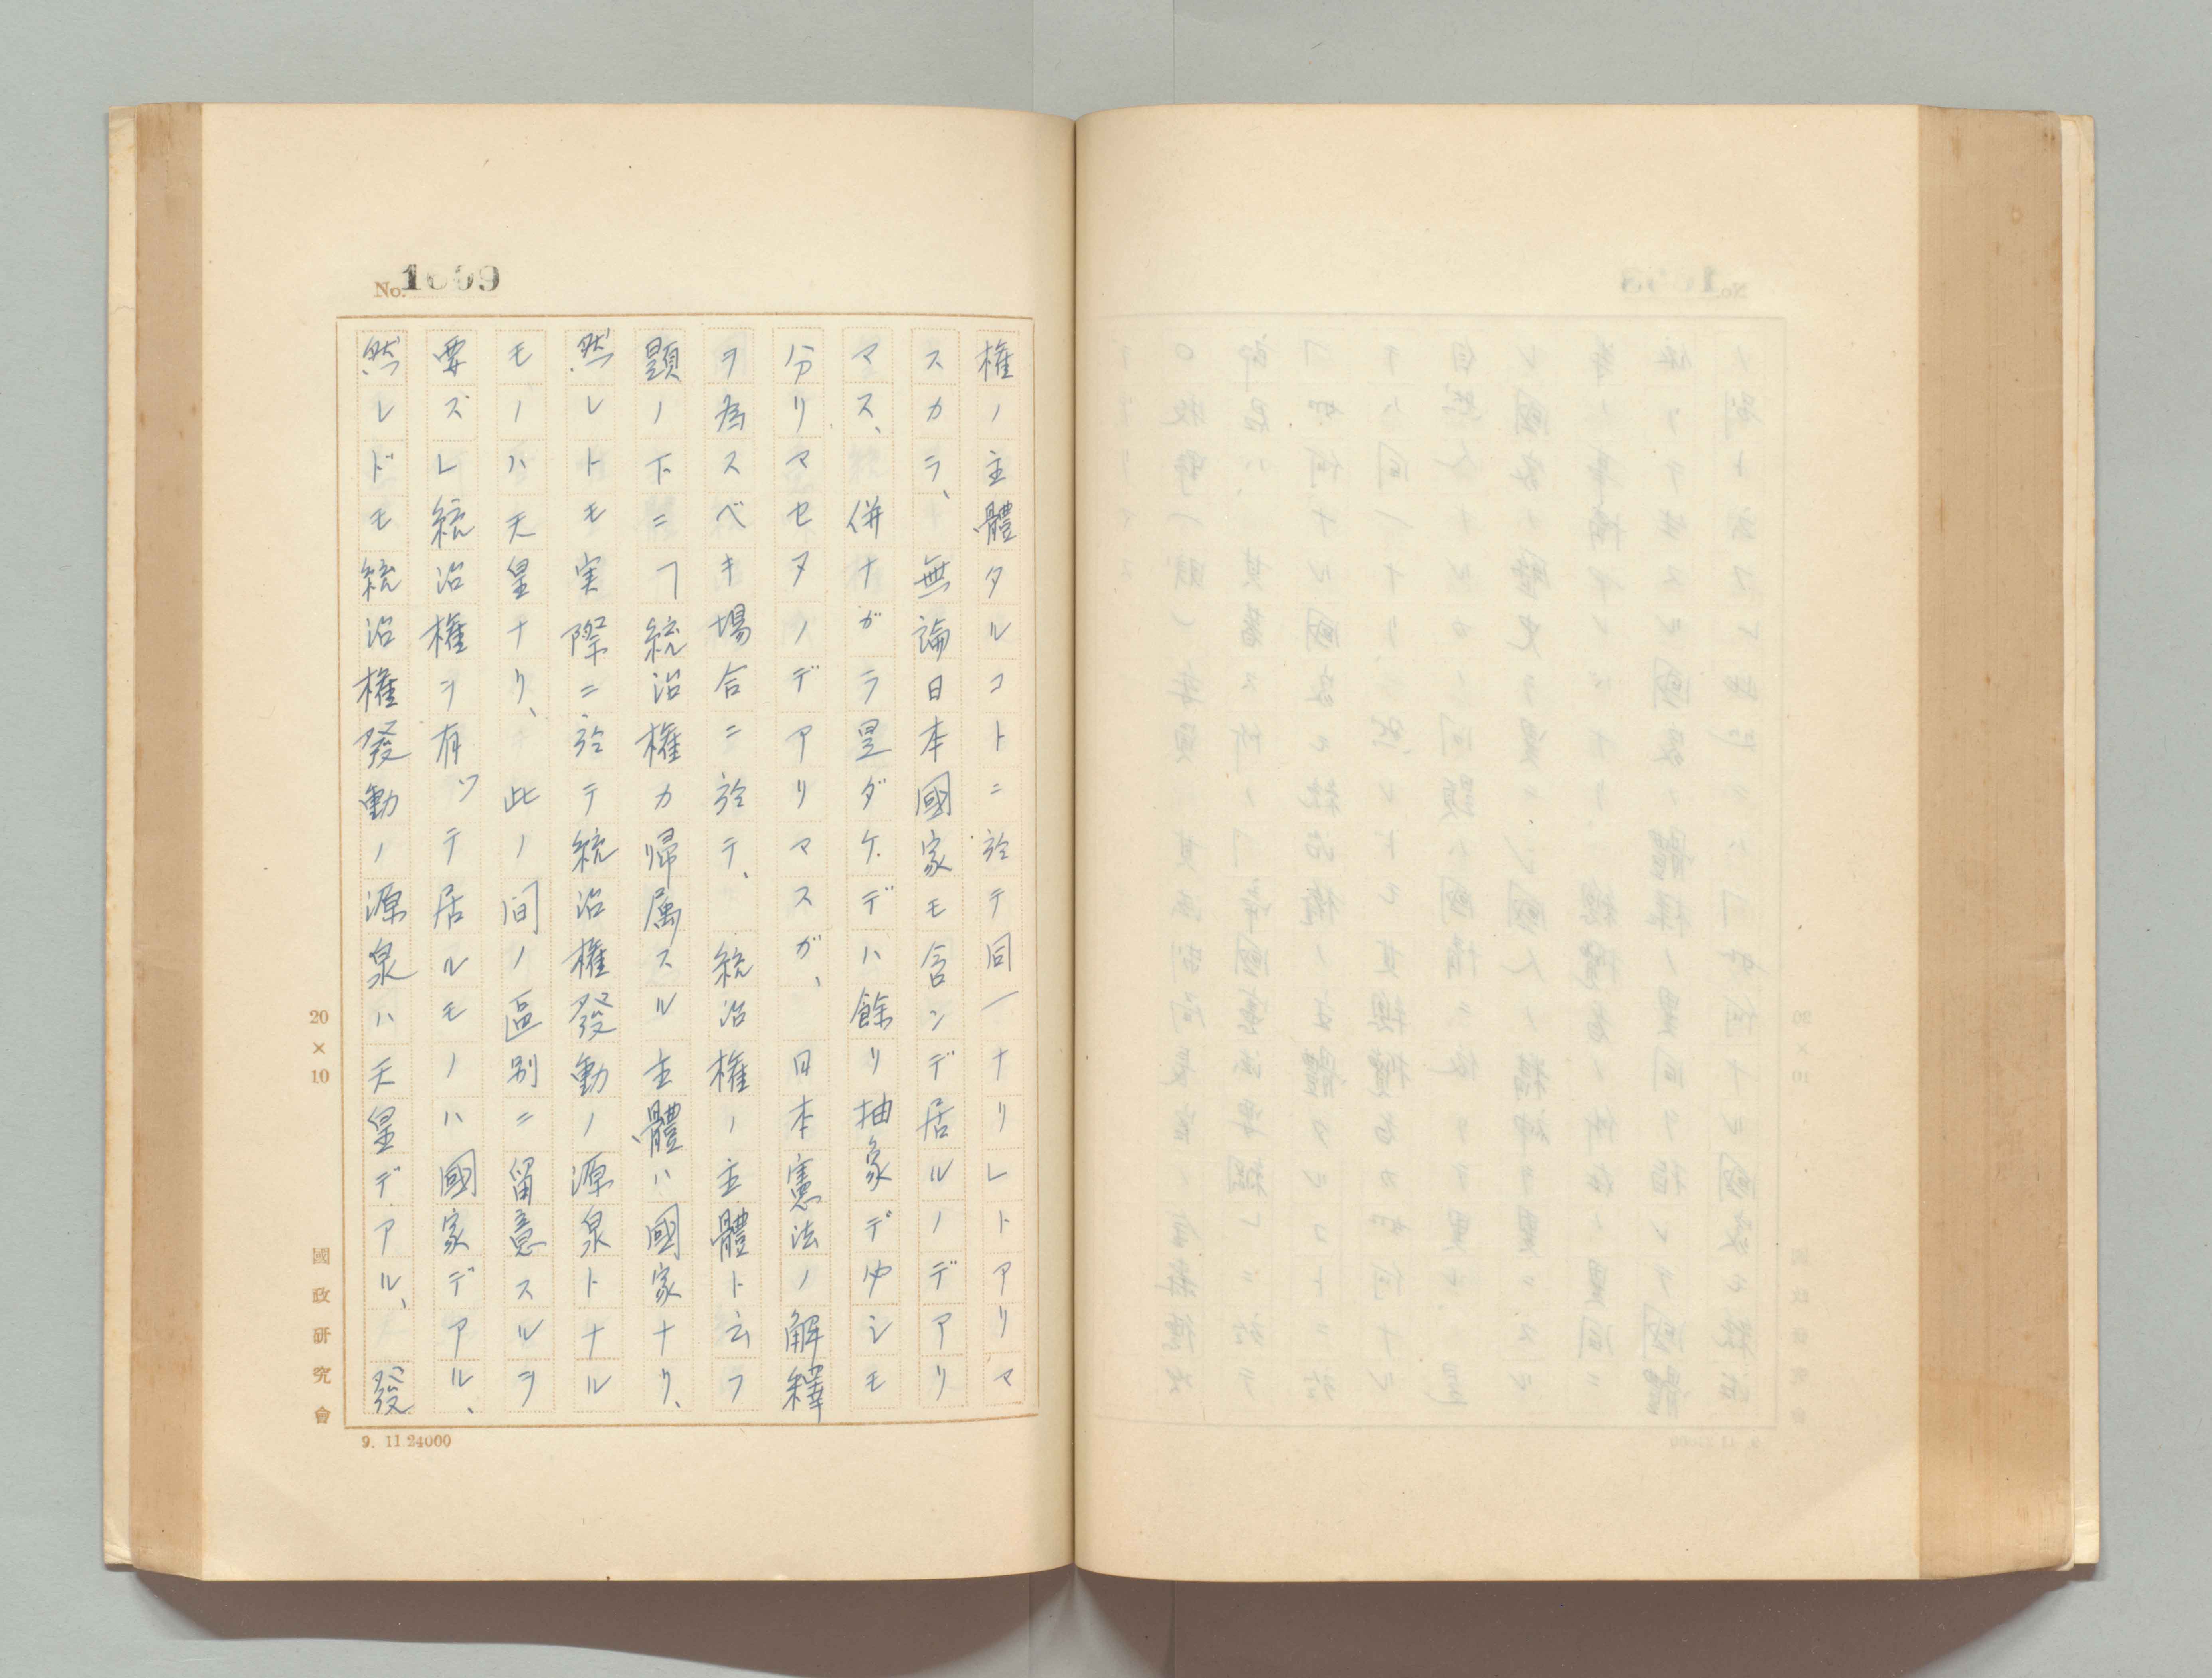 No. 1699
権ノ主體タルコトニ於テ同一ナリレトアリマ
スカラ、無論日本國家モ含ンデ居ルノデアリ
マス、併ナガラ是ダケデハ餘リ抽象デ少シモ
分リマセヌノデアリマスガ、日本憲法ノ解釋
ヲ為スベキ場合ニ於テ、統治権ノ主體ト云フ
題ノ下ニ「統治権カ帰属スル主體ハ國家ナリ、
然レトモ実際ニ於テ統治権發動ノ源泉トナル
モノハ天皇ナリ、此ノ間ノ區別ニ留意スルヲ
要ズレ統治権ヲ有ッテ居ルモノハ國家デアル、
然レドモ統治権發動ノ源泉ハ天皇デアル、發
20×10
國政研究會
9. 11 24000